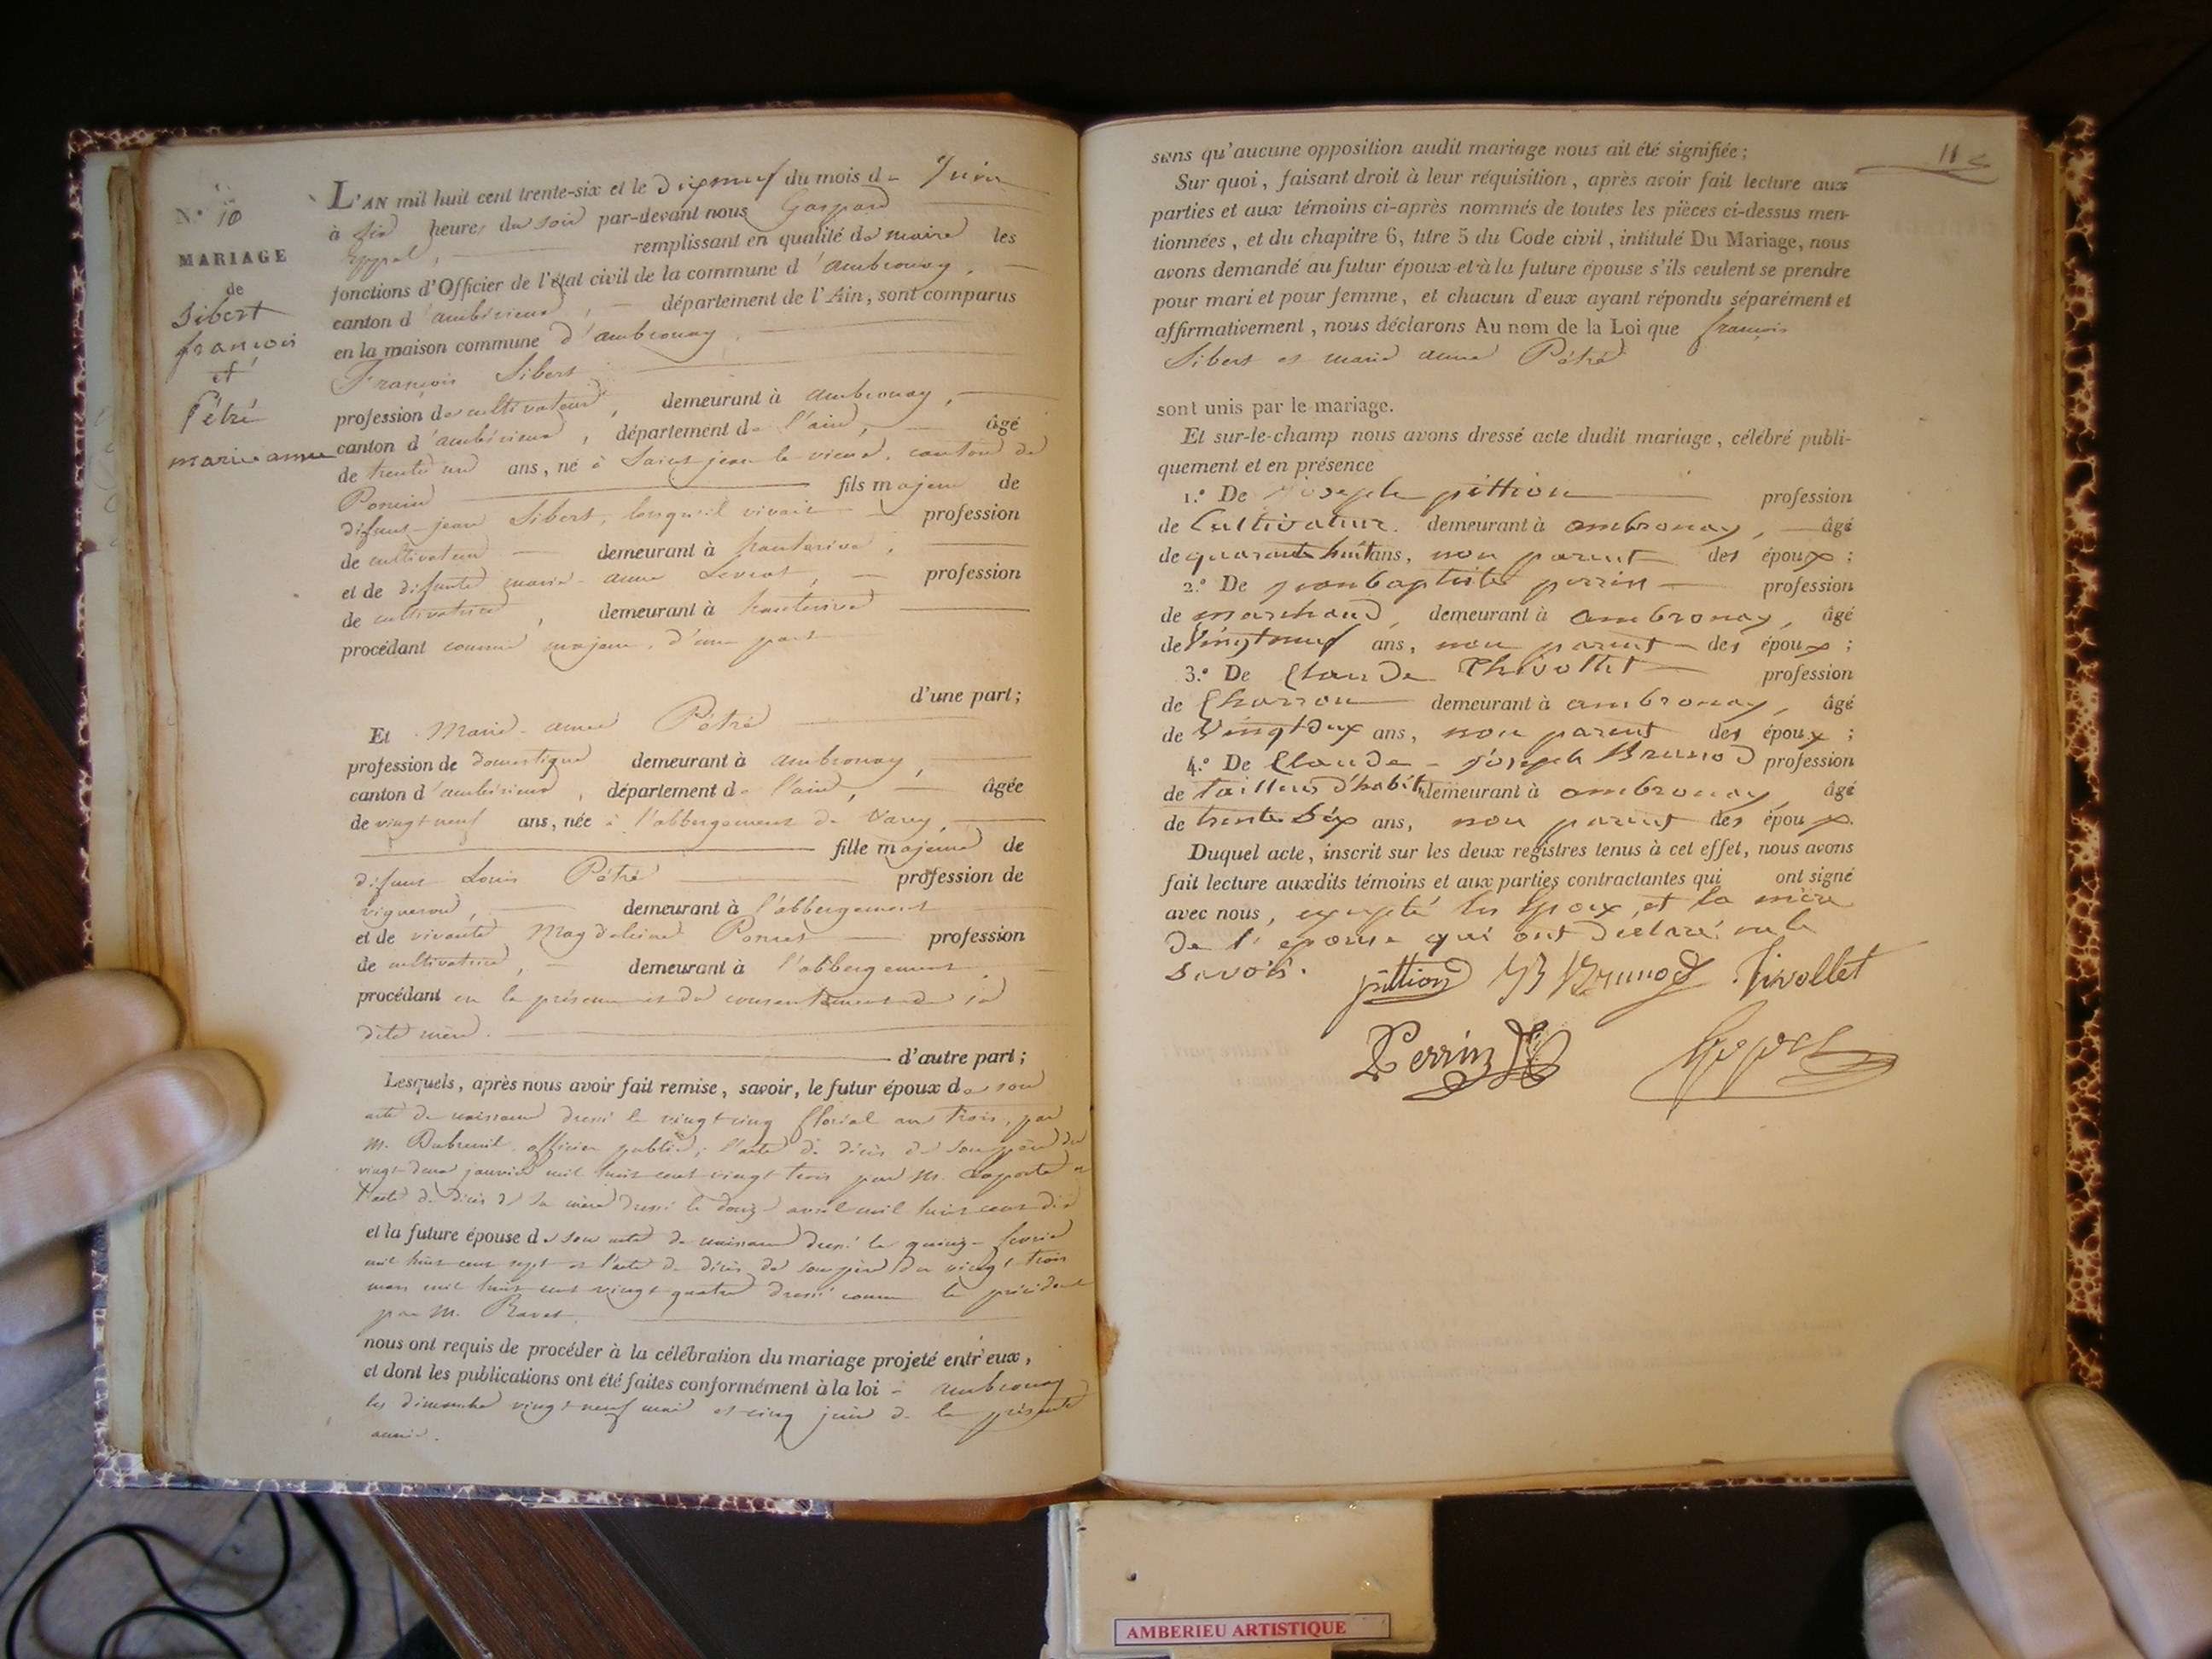 N.° 10
MARIAGE
de
Sibert
françois
et
Pétré
marie anne
L'AN mil huit cent trente-six et le dixneuf du mois de Juin
à six heures du soir par-devant nous Gaspard
remplissant en qualité de maire les
fonctions d'Officier de l'état civil de la commune d'ambronay,
canton d'ambérieux, département de l'Ain, sont comparus
en la maison commune d'ambronay
François Sibert
profession de cultivateur, demeurant à ambronay,
canton d'ambérieux, département de l'ain, âgé
de trente un ans, né à Saint jean le vieux, canton de
Poncin fils majeur de
défunt jean Sibert, lorsqu'il vivait profession
de cultivateur demeurant à hauterive,
et de défunte marie-anne Levrat, profession
de cultivatrice, demeurant à hauterive
procédant comme majeur, d'une part
d'une part;
Et Marie-anne Pétré
profession de domestique demeurant à ambronay,
canton d'ambérieux, département de l'ain, âgée
de vingt neuf ans, née à l'abbergement de Varey,
fille majeure de
défunt Louis Pétré profession de
vigneron, demeurant à l'abbergement
et de vivante Magdeleine Poncet profession
de cultivatrice, demeurant à l'abbergement
procédant en la présence et du consentement de sa
dite mère.
d'autre part;
Lesquels, après nous avoir fait remise, savoir, le futur époux de son
acte de naissance dressé le vingt cinq floréal an trois, par
M. Dubreuil officier public; l'acte de décès de son père du
vingt deux janvier mil huit cent vingt trois par M. Laporte et
l'acte de décès de sa mère dressé le douze avril mil huit cent dix
et la future épouse de son acte de naissance dressé le quinze fevrier
mil huit cent sept et l'acte de décès de son père du vingt trois
mars mil huit cent vingt quatre dressé comme le précédent
par M. Ravet
nous ont requis de procéder à la célébration du mariage projeté entr'eux,
et dont les publications ont été faites conformément à la loi à ambronay
les dimanches vingt neuf mai et cinq juin de la présente
année.
11
sans qu'aucune opposition audit mariage nous ait été signifiée;
Sur quoi, faisant droit à leur réquisition, après avoir fait lecture aux
parties et aux témoins ci-après nommés de toutes les pièces ci-dessus men-
tionnées, et du chapitre 6, titre 5 du Code civil, intitulé Du Mariage, nous
avons demandé au futur époux et à la future épouse s'ils veulent se prendre
pour mari et pour femme, et chacun d'eux ayant répondu séparément et
affirmativement, nous déclarons Au nom de la Loi que françois
Sibert et marie anne Pétré
sont unis par le mariage.
Et sur-le-champ nous avons dressé acte dudit mariage, célébré publi-
quement et en présence
1.° De joseph pittion profession
de Cultivateur demeurant à ambronay, âgé
de quarante huit ans, non parent des époux;
2.° De jeanbaptiste perrin profession
de marchand, demeurant à ambronay, âgé
de Vingtneuf ans, non parent des époux;
3.° De Claude Thivollet profession
de Charron demeurant à ambronay, âgé
de Vingtdeux ans, non parent des époux;
4.° De Claude-joseph Brunod profession
de tailleur d'habit demeurant à ambronay, âgé
de trente six ans, non parent des époux.
Duquel acte, inscrit sur les deux registres tenus à cet effet, nous avons
fait lecture auxdits témoins et aux parties contractantes qui ont signé
avec nous, excepté les époux, et la mère
de l'épouse qui ont déclaré ne le
savoir.
pittion Brunod Tivollet
Perrin
AMBERIEU ARTISTIQUE